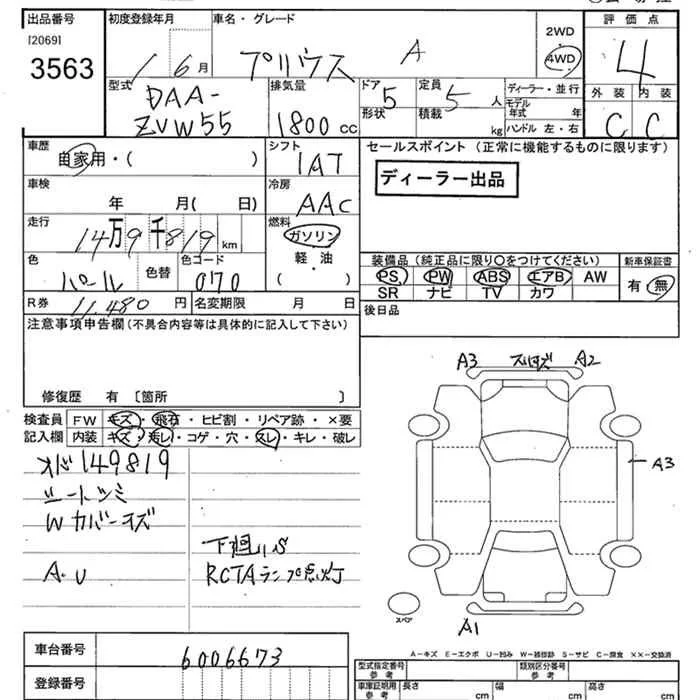 出品番号 初度登録年月 車名・グレード 2WD 評価点
[2069]
3563 1 6月 プリウス A 4WD 4
型式 排気量 ドア 定員 ディーラー・並行 外装 内装
DAA-
ZVW55 1800cc 5 5人 モデル年式 年 C C
形状 積載 kg ハンドル 左・右
車歴 シフト セールスポイント(正常に機能するものに限ります)
自家用・( ) IAT
ディーラー出品
車検 冷房
年 月( 日) AAC
走行 燃料
14万9千819km ガソリン
装備品(純正品に限り○をつけてください) 新車保証書
色 色替 色コード 軽・油
パール 070 ( )
PS PW ABS エアB AW 有・無
SR ナビ TV カワ
R券 11,480円 名変期限 月 日 後日品
注意事項申告欄(不具合内容等は具体的に記入して下さい)
A3 スリキズ A2
修復歴 有 [箇所 ]
検査員 FW キズ・飛石・ヒビ割・リペア跡・×要
記入欄 内装 キズ・汚レ・コゲ・穴・スレ・キレ・破レ
149819
A3
シートシミ
Wカバーキズ
下廻りS
A.U RCTAランプ点灯
スペア
A1
A-キズ E-エクボ U-凹み W-補修跡 S-サビ C-腐食 ××-交換済
車台番号 6006673 型式指定番号 参考 類別区分番号 参考
登録番号 車庫証明用 参考 長さ cm 幅 cm 高さ cm